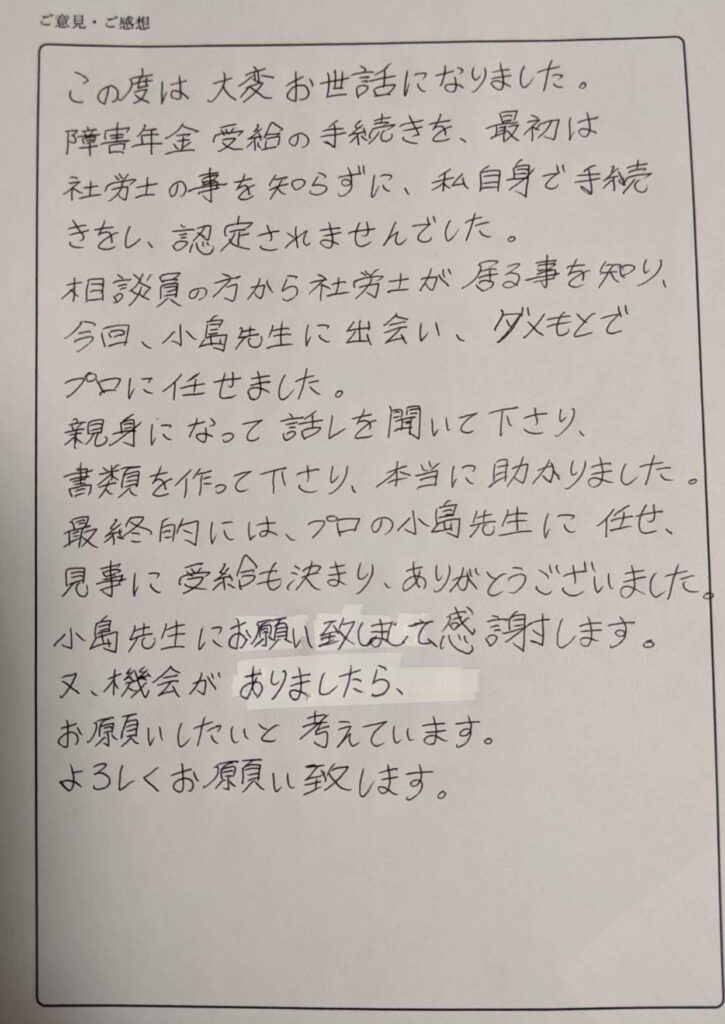 ご意見・ご感想
この度は 大変 お世話になりました。
障害年金 受給の手続きを、最初は
社労士の事を知らずに、私自身で手続
きをし、認定されませんでした。
相談員の方から社労士が居る事を知り、
今回、小島先生に出会い、ダメもとで
プロに任せました。
親身になって 話しを聞いて下さり、
書類を作って下さり、本当に助かりました。
最終的には、プロの小島先生に 任せ、
見事に 受給も決まり、ありがとうございました。
小島先生にお願い致しまして感謝します。
又、機会が ありましたら、
お願いしたいと 考えています。
よろしくお願い致します。